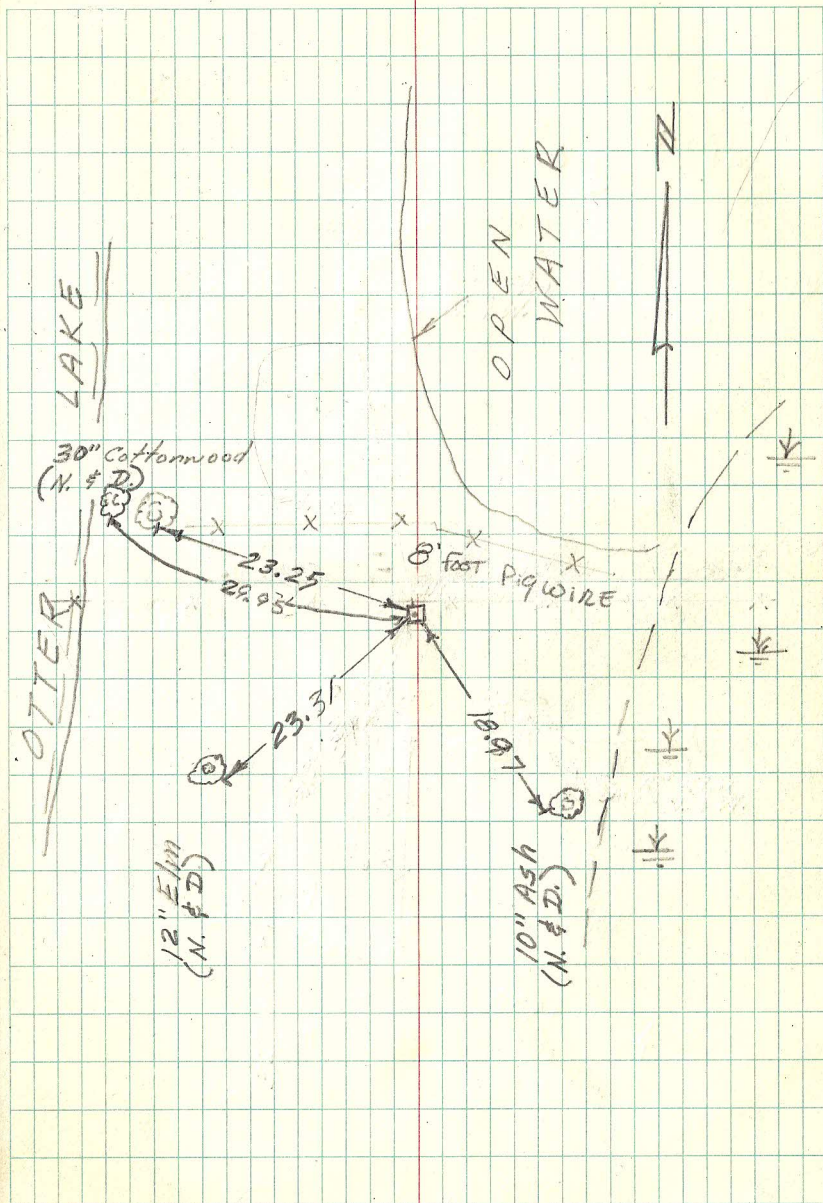 OTTER LAKE
OPEN
WATER
N
30" Cottonwood
(N. & D.)
23.25
8' FOOT PigWIRE
23.31
18.97
12" Elm
(N. & D)
10" Ash
(N. & D.)